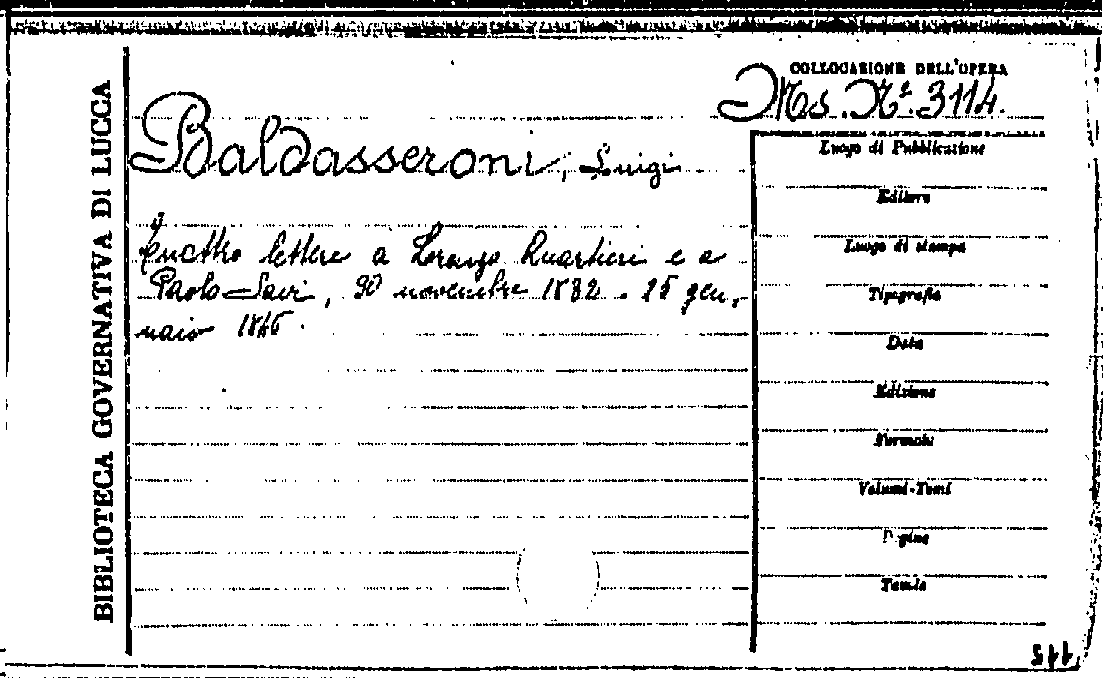 BIBLIOTECA GOVERNATIVA DI LUCCA
COLLOCAZIONE DELL'OPERA
Ms. Nº. 3114.
Baldasseroni, Luigi
Quattro lettere a Lorenzo Quartieri e a
Paolo Savi, 30 novembre 1832 - 25 gen,
naio 1846.
Luogo di Pubblicazione
Editore
Luogo di stampa
Tipografia
Data
Edizione
Formato
Volumi-Tomi
Pagine
Tavole